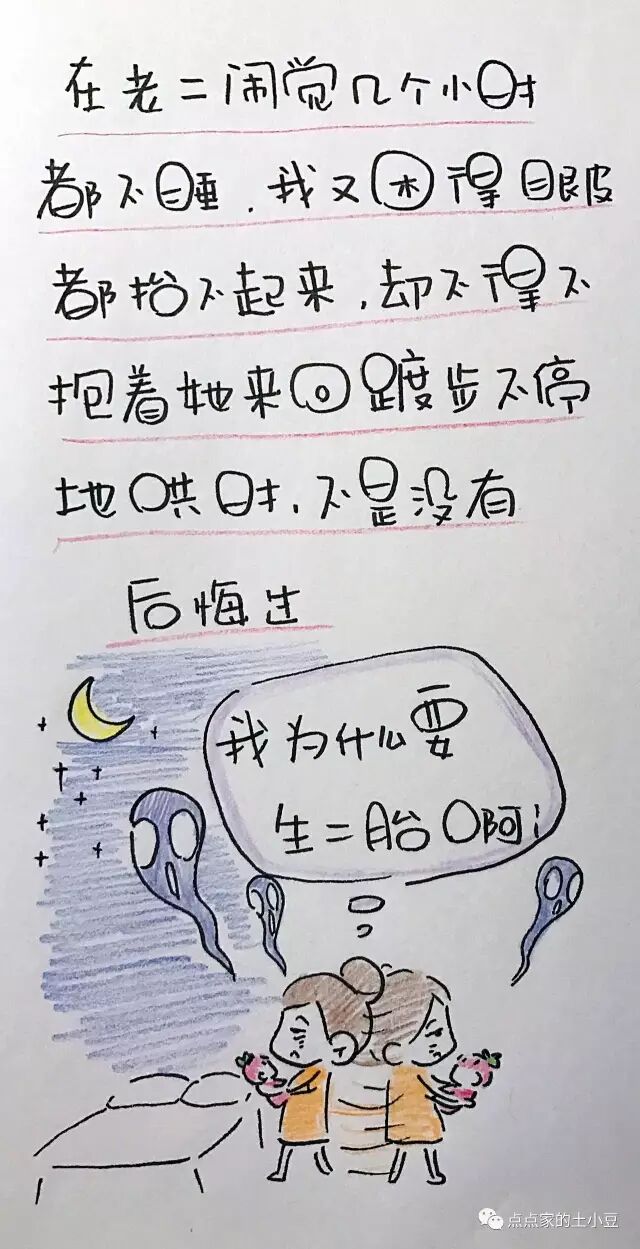 在老二闹觉几个小时
都不睡，我又困得眼皮
都抬不起来，却不得不
抱着她来回踱步不停
地哄时，不是没有
后悔过
我为什么要
生二胎啊！
点点家的土小豆